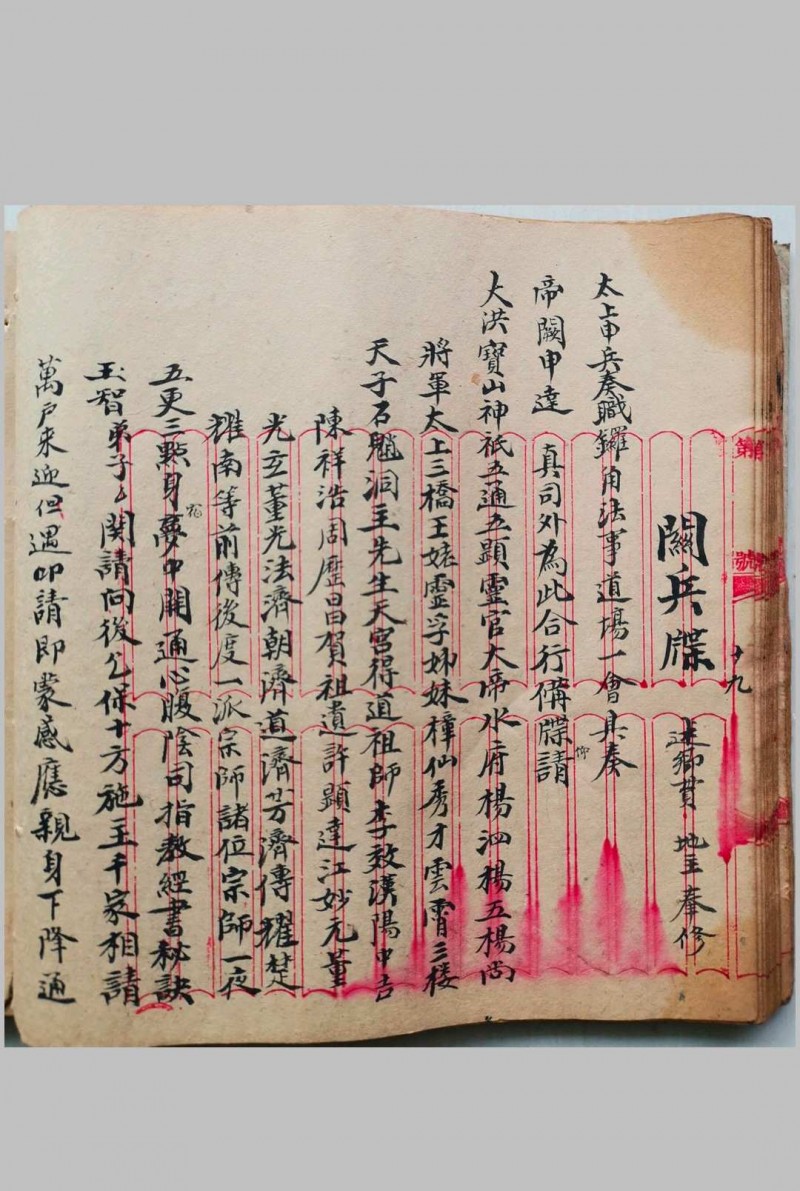 關兵牒 十九
述鄉貫 地主奉修
太上申兵奏職鑼角法事道場一會具奏
帝闕申達 真司外為此合行備牒請
仰
大洪寶山神祇五通五顯靈官大帝水府楊泗楊五楊尚
將軍太上三橋王姥靈孚姊妹樟仙秀才雲霄三楼
天子石魈洞主先生天宮得道祖師李效漢陽中吉
陳祥浩周歷昌賀祖遺許顯達江妙元董
光玄董光法濟朝濟道濟芳濟傳耀楚
耀南等前傳後度一派宗師諸位宗師一夜
五更三點身夢中開通心腹陰司指教經書秘訣
玉智弟子々関請向後公保十方施主千家相請
萬戶來迎但遇叩請即蒙感應親身下降通
第
號